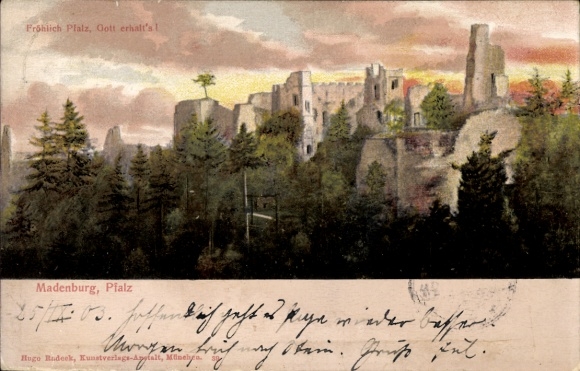 Fröhlich Pfalz, Gott erhalt's!
Madenburg, Pfalz
25/III. 03. Hoffentlich geht es Papa wieder besser.
Morgen früh nach Stein. Gruß Jul.
Hugo Rudeck, Kunstverlags-Anstalt, München.